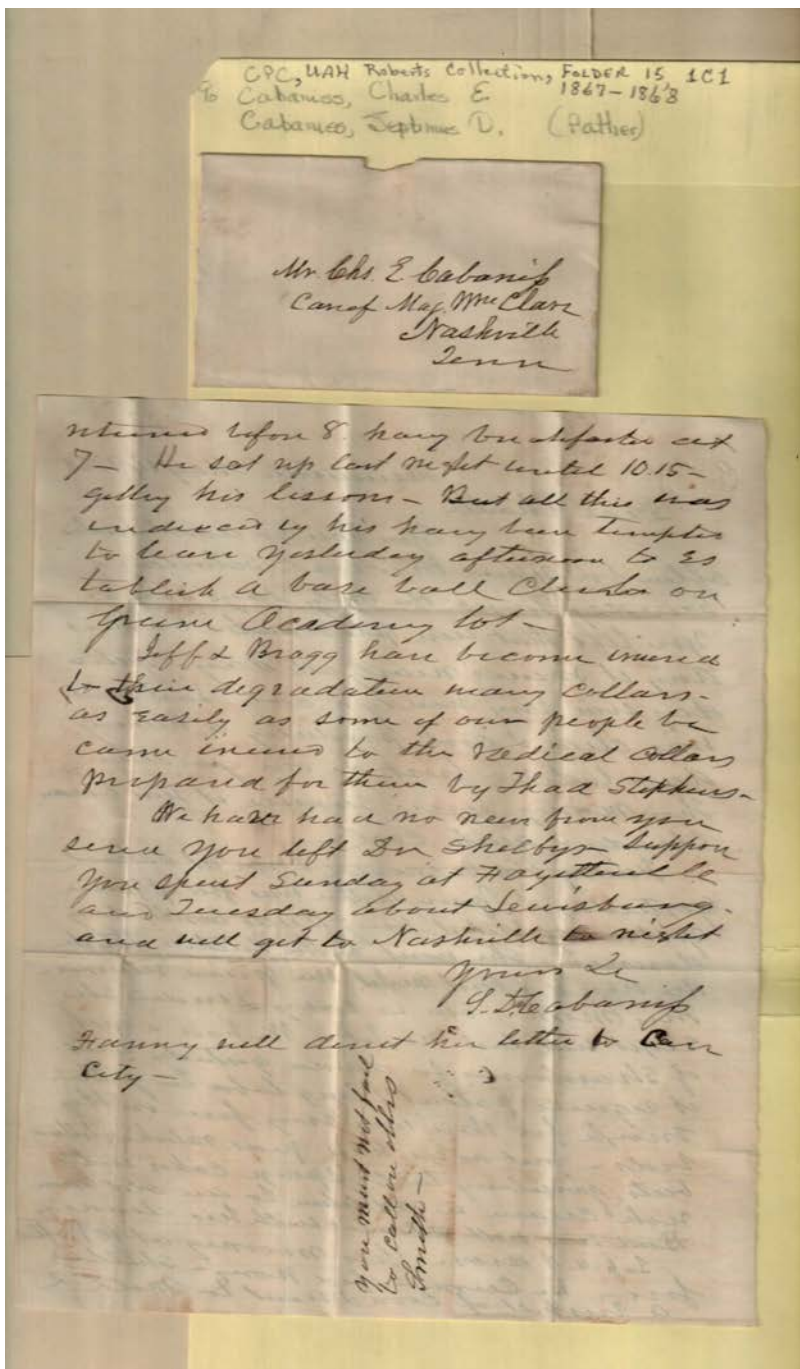 CPC, UAH Roberts Collection, FOLDER 15 1C1
1867-1868
to Cabaniss, Charles E
Cabaniss, Septimus D. (Father)
Mr. Chs. E Cabaniss
Care of Maj. Wm Clare
Nashville
Tenn
returned before 8. having breakfasted at
7— He sat up last night until 10.15—
getting his lessons— But all this was
induced by his having been tempted
to leave yesterday afternoon to es
tablish a base ball Club on
Green Academy lot—
Jeff & Bragg have become inured
to their degradation collars—
as easily as some of our people be
came inured to the Radical collars
prepared for them by Thad Stephens—
We have had no news from you
since you left Dr Shelbys suppose
you spent Sunday at Fayetteville
and Tuesday about Lewisburg—
and will get to Nashville to night
Yours &c
S. D. Cabaniss
Fanny will direct her letter to
City—
you must not fail
to call on Miss
Smith—